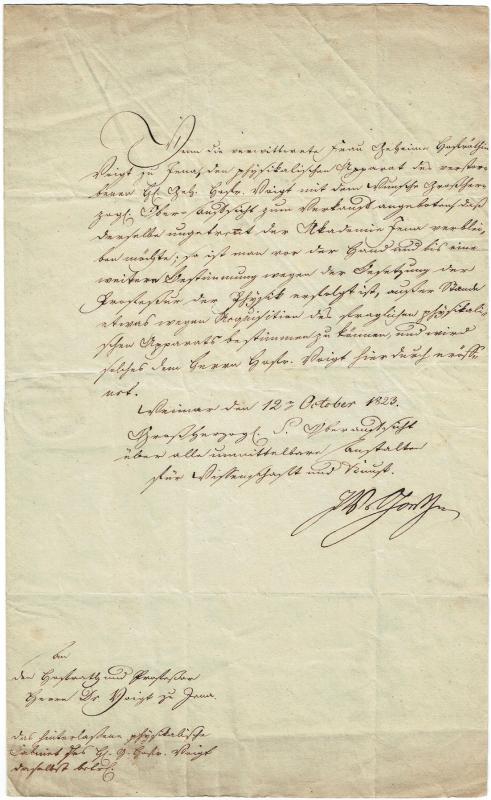 Wenn die verwittwete Frau Geheime Hofräthin
Voigt zu Jena, den physikalischen Apparat des verstor-
benen H. Geh. Hofr. Voigt mit dem Wunsche Großher-
zogl. Ober-Aufsicht zum Verkauf angeboten, daß
derselbe ungetrennt der Akademie Jena verblei-
ben möchte; so ist man vor der Hand und bis eine
weitere Bestimmung wegen der Besetzung der
Professur der Physik erfolgt ist, außer Stande
etwas wegen Acquisition des fraglichen physikali-
schen Apparats bestimmen zu können, und wird
solches dem Herrn Hofr. Voigt hierdurch eröff-
net.
Weimar den 12n October 1823.
Großherzogl. S. Oberaufsicht
über alle unmittelbare Anstalten
für Wissenschaft und Kunst.
JWvGoethe
An
den Hofrath und Professor
Herrn Dr Voigt zu Jena.
das hinterlassene physikalische
Cabinet des H. G. Hofr. Voigt
daselbst betr.